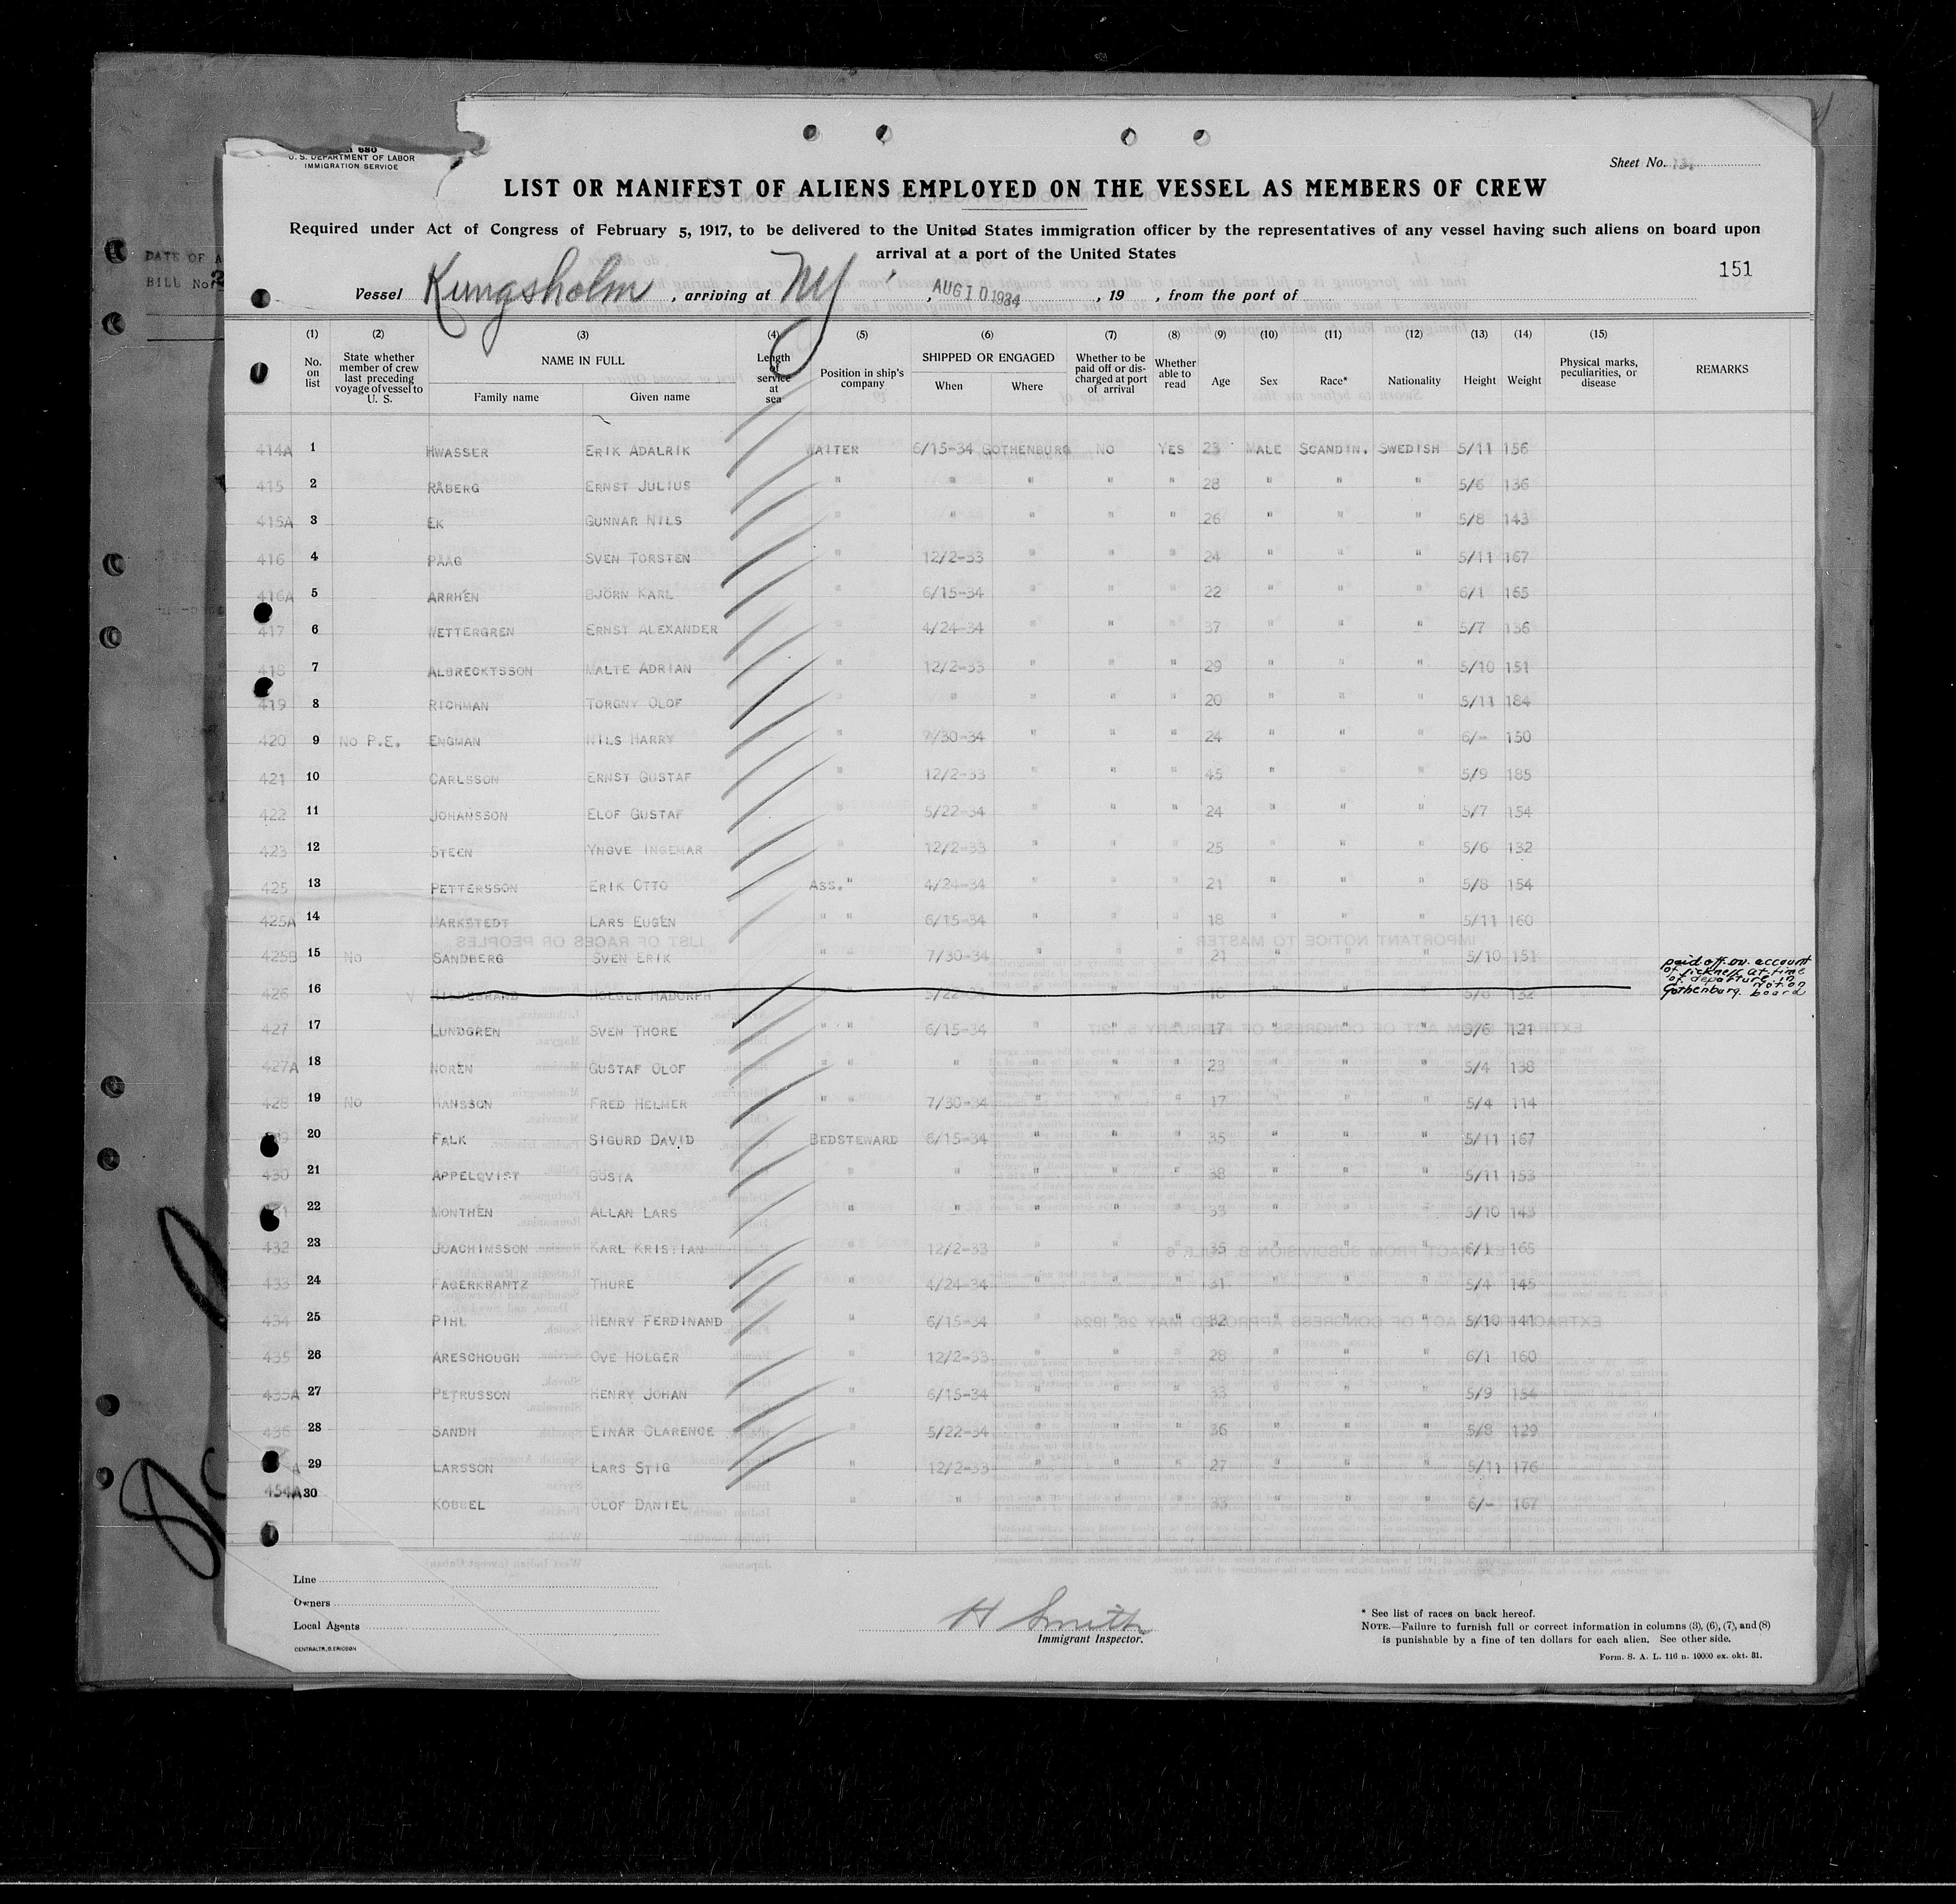 680
U. S. DEPARTMENT OF LABOR
IMMIGRATION SERVICE
Sheet No. 13.
LIST OR MANIFEST OF ALIENS EMPLOYED ON THE VESSEL AS MEMBERS OF CREW
Required under Act of Congress of February 5, 1917, to be delivered to the United States immigration officer by the representatives of any vessel having such aliens on board upon
arrival at a port of the United States
151
DATE OF A
BILL No.
Vessel Kungsholm, arriving at NY, AUG 10 1934, 19 , from the port of
(1) (2) (3) (4) (5) (6) (7) (8) (9) (10) (11) (12) (13) (14) (15)
No. on list State whether member of crew last preceding voyage of vessel to U. S. NAME IN FULL Family name Given name Length of service at sea Position in ship's company SHIPPED OR ENGAGED When Where Whether to be paid off or discharged at port of arrival Whether able to read Age Sex Race* Nationality Height Weight Physical marks, peculiarities, or disease REMARKS
414A 1 HWASSER ERIK ADALRIK WAITER 6/15-34 GOTHENBURG NO YES 23 MALE SCANDIN. SWEDISH 5/11 156
415 2 RÅBERG ERNST JULIUS " " " " " 28 " " " 5/6 136
415A 3 EK GUNNAR NILS " " " " " 26 " " " 5/8 143
416 4 PAAG SVEN TORSTEN " 12/2-33 " " " 24 " " " 5/11 167
416A 5 ARRHÉN BJÖRN KARL " 6/15-34 " " " 22 " " " 6/1 165
417 6 WETTERGREN ERNST ALEXANDER " 4/24-34 " " " 37 " " " 5/7 136
418 7 ALBRECKTSSON MALTE ADRIAN " 12/2-33 " " " 29 " " " 5/10 151
419 8 RICHMAN TORGNY OLOF " " " " " 20 " " " 5/11 184
420 9 NO P.E. ENGMAN NILS HARRY " 7/30-34 " " " 24 " " " 6/- 150
421 10 CARLSSON ERNST GUSTAF " 12/2-33 " " " 45 " " " 5/9 185
422 11 JOHANSSON ELOF GUSTAF " 5/22-34 " " " 24 " " " 5/7 154
423 12 STEEN YNGVE INGEMAR " 12/2-33 " " " 25 " " " 5/6 132
425 13 PETTERSSON ERIK OTTO ASS. " 4/24-34 " " " 21 " " " 5/8 154
425A 14 MARKSTEDT LARS EUGEN " " 6/15-34 " " " 18 " " " 5/11 160
425B 15 NO SANDBERG SVEN ERIK " " 7/30-34 " " " 21 " " " 5/10 151
426 16 HILDEBRAND HOLGER 5/22-34 132 paid off on account of sickness at time of departure in Gothenburg. not on board
427 17 LUNDGREN SVEN THORE " " 6/15-34 " " " 17 " " " 5/6 121
427A 18 NORÉN GUSTAF OLOF " " " " " " 23 " " " 5/4 138
428 19 NO HANSSON FRED HELMER " " 7/30-34 " " " 17 " " " 5/4 114
20 FALK SIGURD DAVID BEDSTEWARD 6/15-34 " " " 35 " " " 5/11 167
430 21 APPELQVIST GÖSTA " " " " " 38 " " " 5/11 153
22 MONTHÉN ALLAN LARS " " " " " 33 " " " 5/10 143
432 23 JOACHIMSSON KARL KRISTIAN " 12/2-33 " " " 35 " " " 6/1 165
433 24 FAGERKRANTZ THURE " 4/24-34 " " " 31 " " " 5/4 145
434 25 PIHL HENRY FERDINAND " 6/15-34 " " " 32 " " " 5/10 141
435 26 ARESCHOUGH OVE HOLGER " 12/2-33 " " " 28 " " " 6/1 160
435A 27 PETRUSSON HENRY JOHAN " 6/15-34 " " " 33 " " " 5/9 154
436 28 SANDH EINAR CLARENCE " 5/22-34 " " " 36 " " " 5/8 129
A 29 LARSSON LARS STIG " 12/2-33 " " " 27 " " " 5/11 176
454A 30 KOBBEL OLOF DANIEL " " " " " 33 " " " 6/- 167
Line
Owners
Local Agents
CENTRALTR., G. ERICSON
H Smith
Immigrant Inspector.
* See list of races on back hereof.
NOTE.—Failure to furnish full or correct information in columns (3), (6), (7), and (8)
is punishable by a fine of ten dollars for each alien. See other side.
Form. S. A. L. 116 n. 10000 ex. okt. 31.